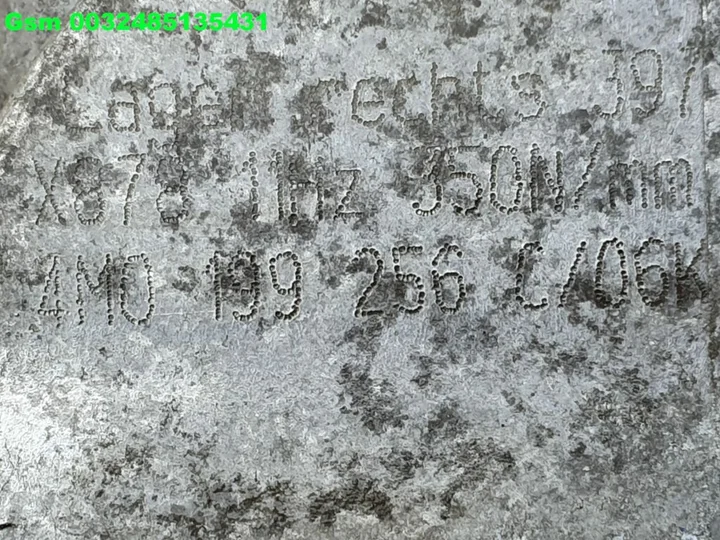 Gsm 0032485135431
Lager rechts 391
X878 11Hz 350N/mm
4M0 199 256 C/06K